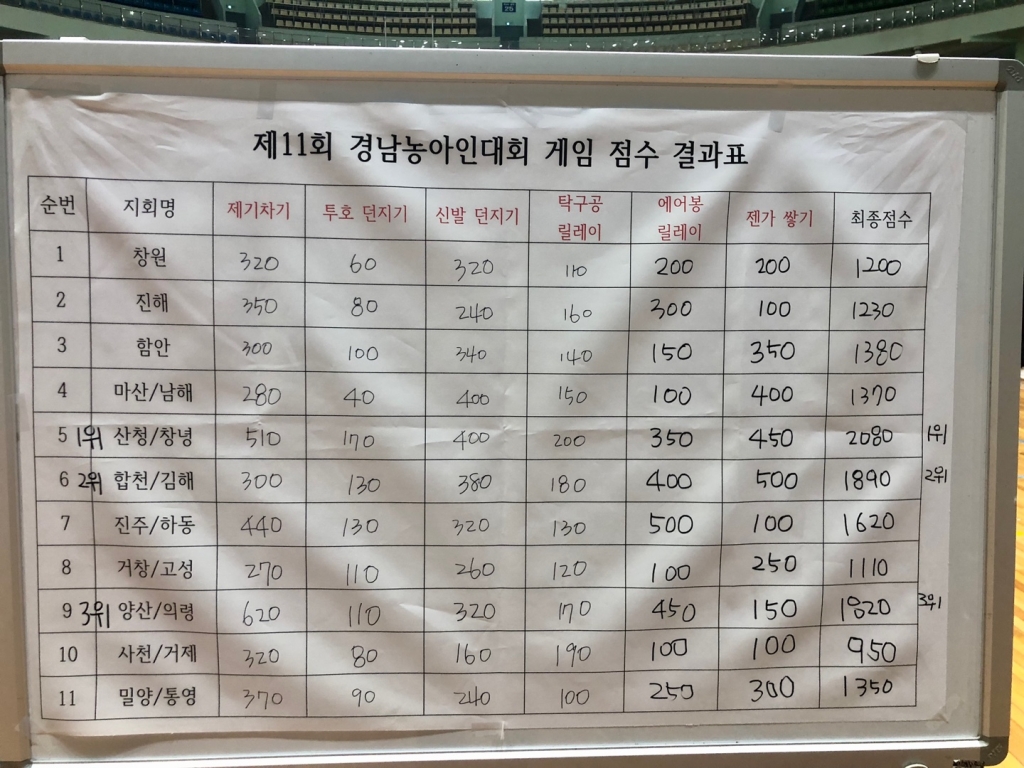 제11회 경남농아인대회 게임 점수 결과표
순번 지회명 제기차기 투호 던지기 신발 던지기 탁구공 릴레이 에어봉 릴레이 젠가 쌓기 최종점수
1 창원 320 60 320 110 200 200 1200
2 진해 350 80 240 160 300 100 1230
3 함안 300 100 340 140 150 350 1380
4 마산/남해 280 40 400 150 100 400 1370
5 1위 산청/창녕 510 170 400 200 350 450 2080 1위
6 2위 합천/김해 300 130 380 180 400 500 1890 2위
7 진주/하동 440 130 320 130 500 100 1620
8 거창/고성 270 110 260 120 100 250 1110
9 3위 양산/의령 620 110 320 170 450 150 1820 3위
10 사천/거제 320 80 160 190 100 100 950
11 밀양/통영 370 90 240 100 250 300 1350